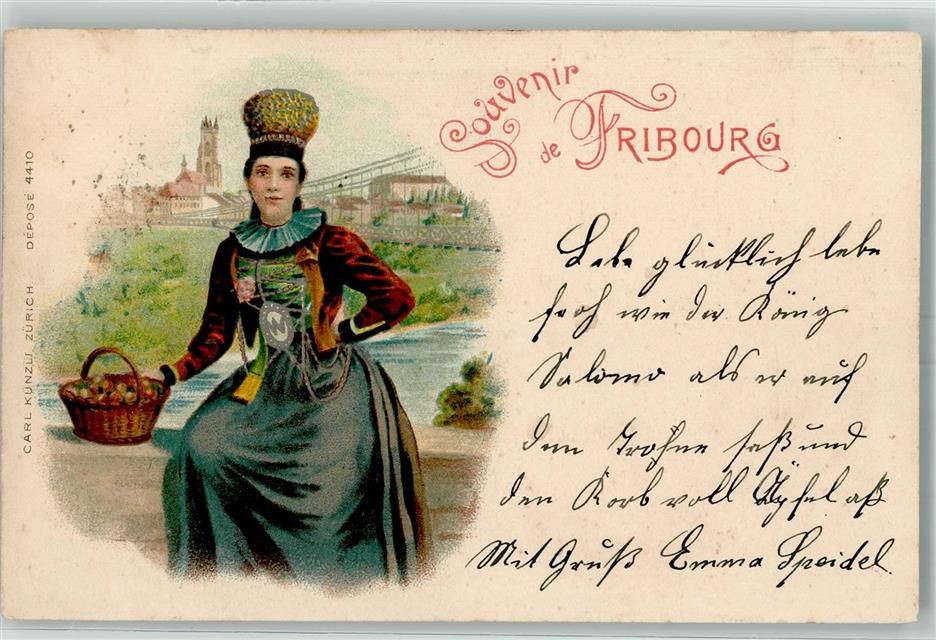 Souvenir
de FRIBOURG
Lebe glücklich lebe
froh wie der König
Salomo als er auf
dem Trohne saß und
den Korb voll Äpfel aß
Mit Gruß Emma Speidel.
CARL KÜNZLI, ZÜRICH. DÉPOSÉ 4410